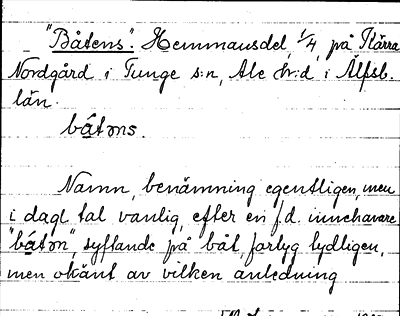 "Båtens". Hemmansdel, 1/4, på Skårra
Nordgård i Tunge s:n, Ale h:d i Älfsb.
län.
båtəns.
Namn, benämning egentligen, men
i dagl. tal vanlig, efter en f.d. innehavare
"båtən", syftande på båt, farlyg tydligen,
men okänt av vilken anledning